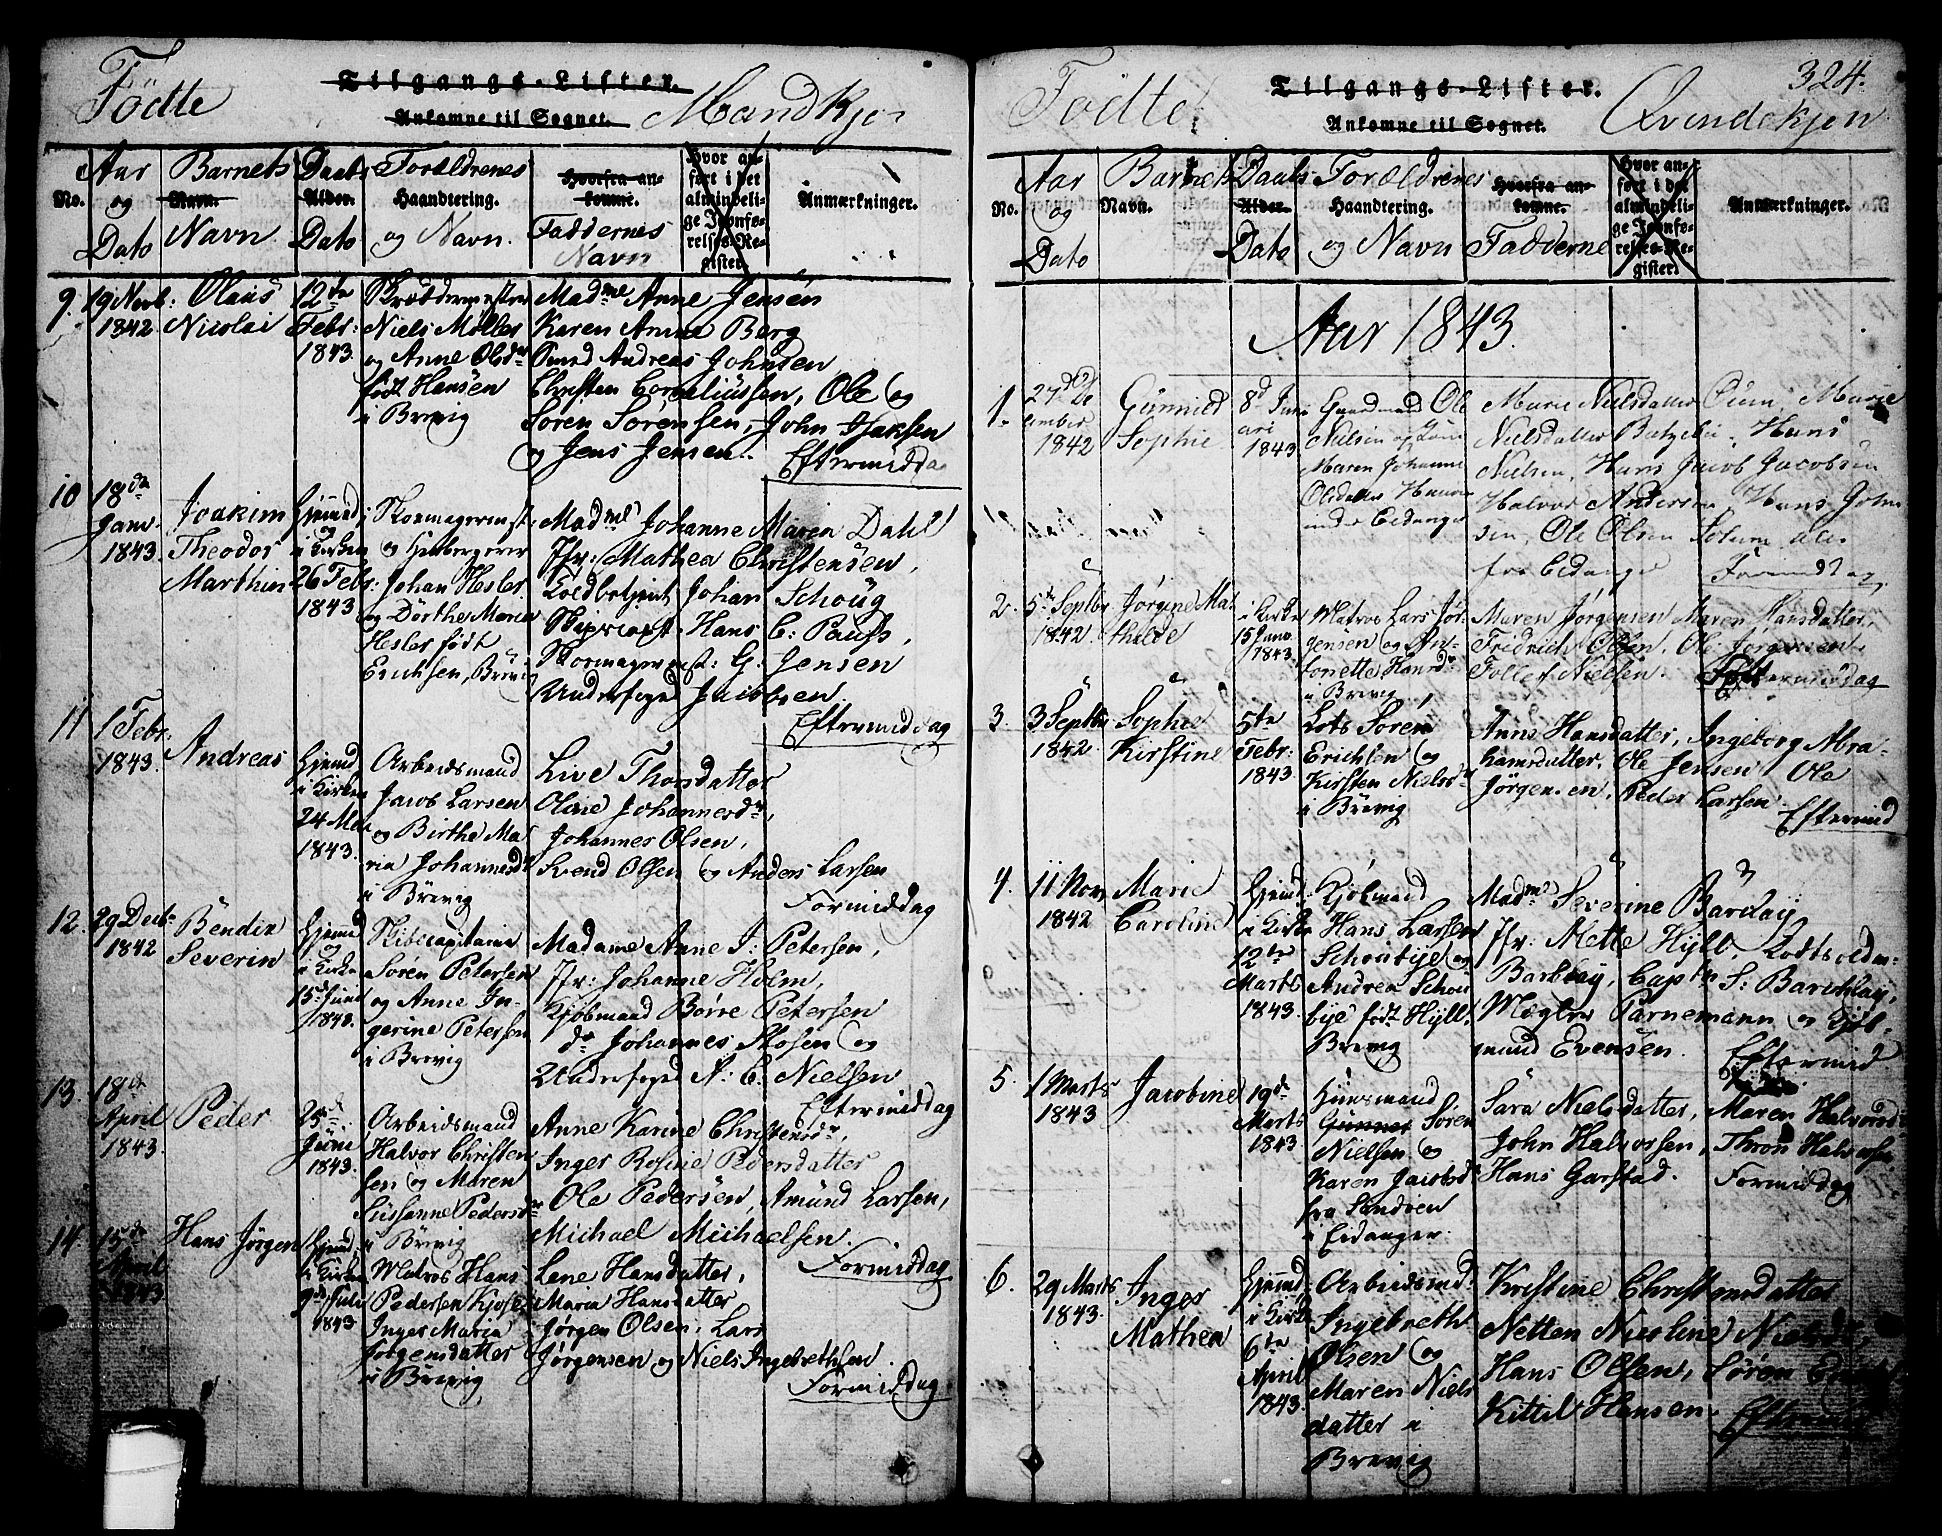 Födte
Tilgangs-Lister.
Ankomne til Sognet.
Mandkjø
No.
Aar og Dato
Barnets Navn. Navn
Daabs Alder. Dato
Forældrenes Haandtering. og Navn.
Hvorfra ankomne. Faddernes Navn
Hvor anført i det almindelige Jevnførelses-Register.
Anmærkninger.
9. 19 Novb: 1842
Olaus Nicolai
12te Febr: 1843
Niels Möller
og Anne Olsdr
födt Hansen
i Brevig
Madme Anne Jensen
Karen Anne Berg
Svend Andreas Johnsen
Christen Corneliussen, Ole og
Sören Sörensen, John Isaksen
og Jens Jensen.
Eftermiddag
10 18de Janv. 1843.
Joakim
Theodor
Marthin
Hjemd
og
i Kirken
26 Febr:
1843.
Skomagermest
og
Johan Hesler
og Dörthe Maria
Hesler födt
Erichsen, Brevig
Madme Johanne Maren Dahl
Jfr: Mathea Christensen,
Toldbetjent Johan Schoug
Hans C: Pauss,
Skomagermest: G: Jensen
Underfoged Jacobsen.
Eftermiddag
11 1 Febr. 1843.
Andreas
Hjemd
i Kirken
24 Mai
1843.
Arbeidsmand
Jacob Larsen
og Birthe Ma
ria Johannesdr
i Brevig
Live Thorsdatter
Oline Johannesdr,
Johannes Olsen,
Svend Olsen og Anders Larsen
Formiddag
12. 29 Decb. 1842
Bendix
Severin
Hjemd
og
i Kirke
15de Juni
1843.
Skibscapitain
Sören Petersen
og Anne In-
gerine Petersen
i Brevig
Madame Anne J: Petersen,
Jfr: Johanne Holm,
Kjöbmand Börre Petersen
do Johannes Stosen og
Underfoged N: C: Nielsen
Eftermiddag
13. 18de April 1843.
Peder
25de
Juni
1843.
Arbeidsmand
Halvor Christen
sen og Maren
Susanne Pedersdr
i Brevig
Anne Karine Christensdr,
Inger Rosine Pedersdatter
Ole Pedersen, Amund Larsen,
Michael Michaelsen.
Formiddag
14 15de April 1843
Hans Jörgen
Hjemd
i Kirken
9de Juli
1843
Matros Hans
Pedersen
Inger Maria
Jörgensdatter
i Brevig
Lene Hansdatter,
Maria Hansdatter
Jörgen Olsen, Lars
Jörgensen og Niels Ingebrethsen.
Formiddag
Födte
Tilgangs-Lister.
Ankomne til Sognet.
Qvindekjön
324.
No.
Aar og Dato
Barnets Navn.
Daabs Alder. Dato
Forældrenes Haandtering. og Navn
Hvorfra ankomne. Faddernes
Hvor anført i det almindelige Jevnførelses-Register.
Anmærkninger.
Aar 1843.
1. 27 De
cember
1842
Gunnild
Sophie
8de Janu
ari
1843
Gaardmand Ole
Nielsen og
Maren Johanne
Olsdatter
under Eidanger
Marie Nielsdatter Öium, Marie
Nielsdatter Hans
Nielsen, Hans Jacob Jacobsen
Halvor Andersen Hans John
sen, Ole Olsen alle
fra Eidanger
Formiddag
2. 5te Septbr 1842.
Jörgine Ma
thilde
i Kirke
15 Janv.
1843.
Matros Lars Jör
gensen og An-
tonette Hansdr
i Brevig
Maren Jörgensen Maren Hansdatter,
Fridrich Olsen, Ole Jörgensen
Tollef Nielsen.
Eftermiddag
3. 3 Septbr 1842.
Sophie
Kirstine
5te
Febr:
1843.
Lots Sören
Erichsen og
Kirsten Nielsdr
i Brevig
Anne Hansdatter, Ingeborg Abra-
hamsdatter, Ole Jensen Ole
Jörgensen, Peder Larsen.
Eftermid
4. 11 Nov. 1842.
Marie
Caroline
Hjemd
i Kirke
12te
Marts
1843.
Kjöbmand
Hans Larsen
Schoubye og
Andrea Schou
bye födt Hyll.
Brevig
Madme Severine Barclay
Jfr: Mette Hyll, Lodtsoldm:
Barclay, Captn S: Barchlay,
Mægler Parnemann og Kjöb-
mand Evensen.
Eftermid.
5. 1 Marts 1843
Jacobine
19de
Marts
1843
Huusmand
Gunner Sören
Nielsen og
Karen Jacobsd
fra Sandven
i Eidanger.
Sara Nielsdatter, Maren Halvorsd
John Halvorsen, Thron Halvorsen
Hans Garstad.
Formiddag
6. 29 Marts 1843.
Inger
Mathea
Hjemd
i Kirke
6te
April
1843.
Arbeidsmd.
Ingebreth
Olsen og
Maren Niels
datter i
Brevig
Kristine Christensdatter
Netten Nicoline Nielsdr
Hans Olsen, Sören
Kittil Hansen.
Eftermid